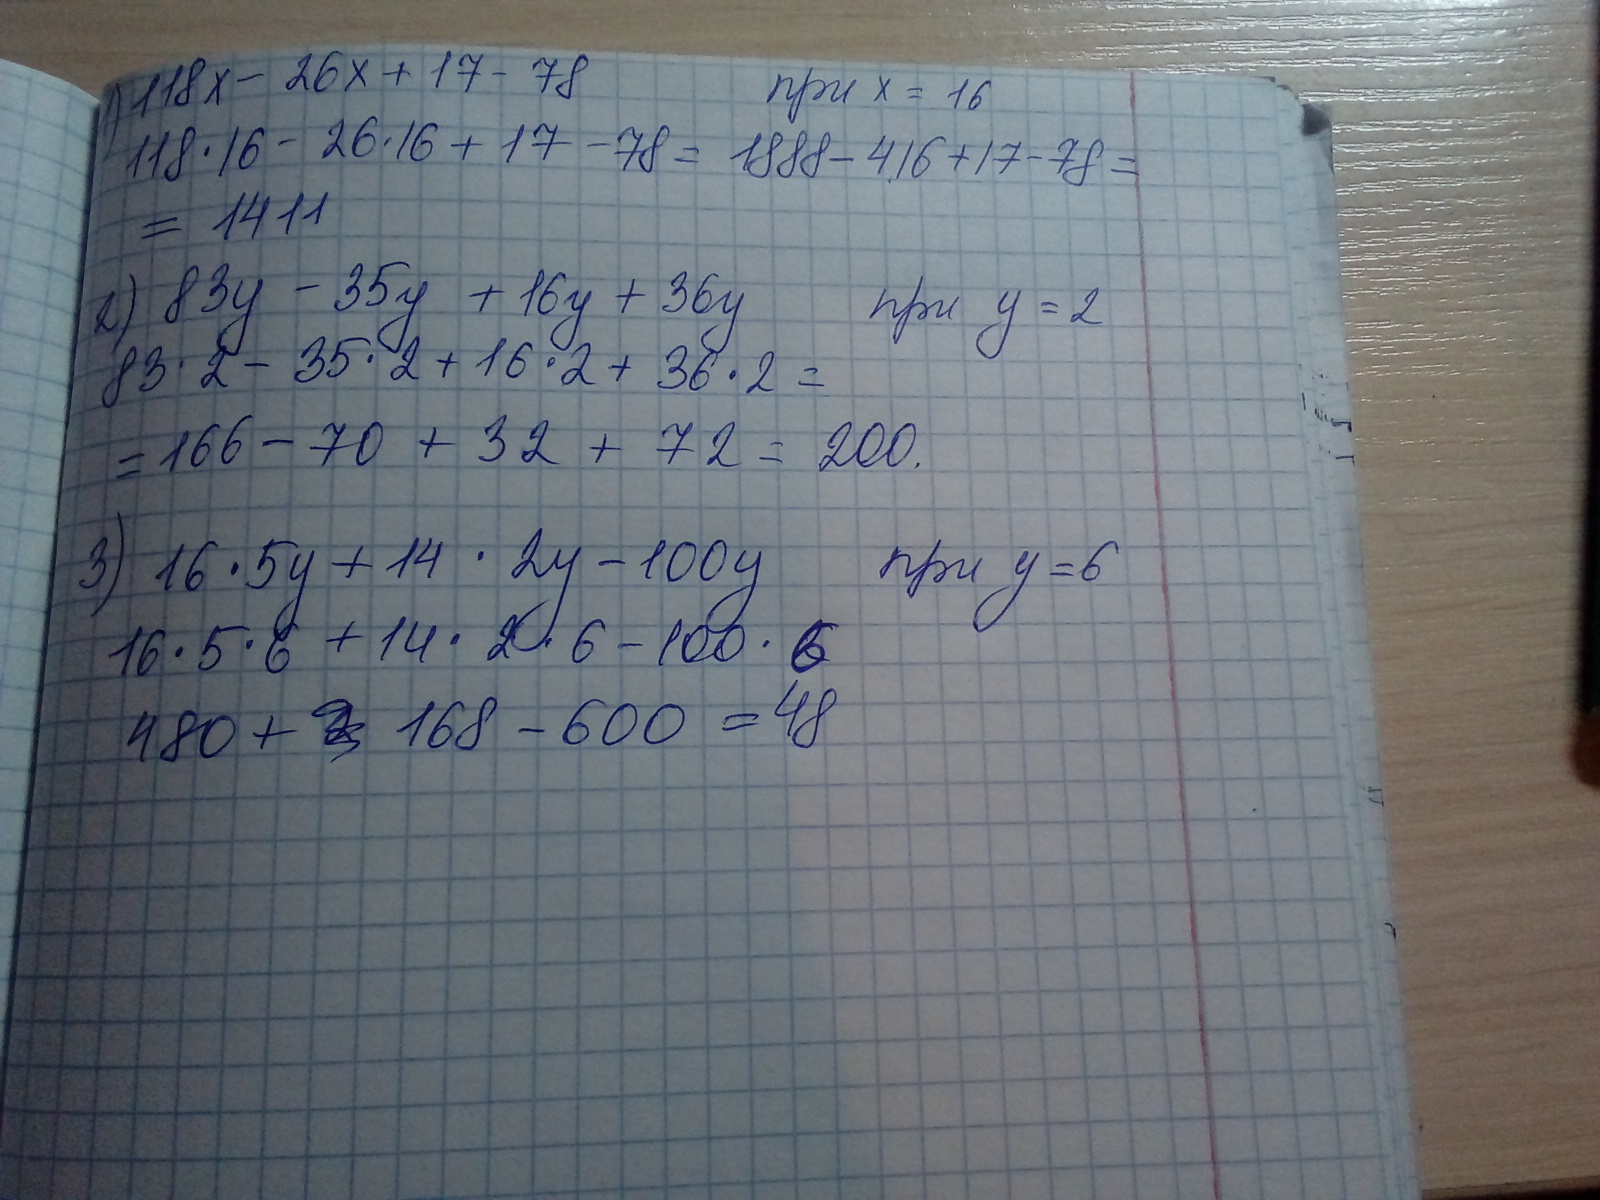 1) 118x - 26x + 17 - 78 при x = 16
118·16 - 26·16 + 17 - 78 = 1888 - 416 + 17 - 78 =
= 1411
2) 83y - 35y + 16y + 36y при y = 2
83·2 - 35·2 + 16·2 + 36·2 =
= 166 - 70 + 32 + 72 = 200.
3) 16·5y + 14·2y - 100y при y = 6
16·5·6 + 14·2·6 - 100·6
480 + 168 - 600 = 48